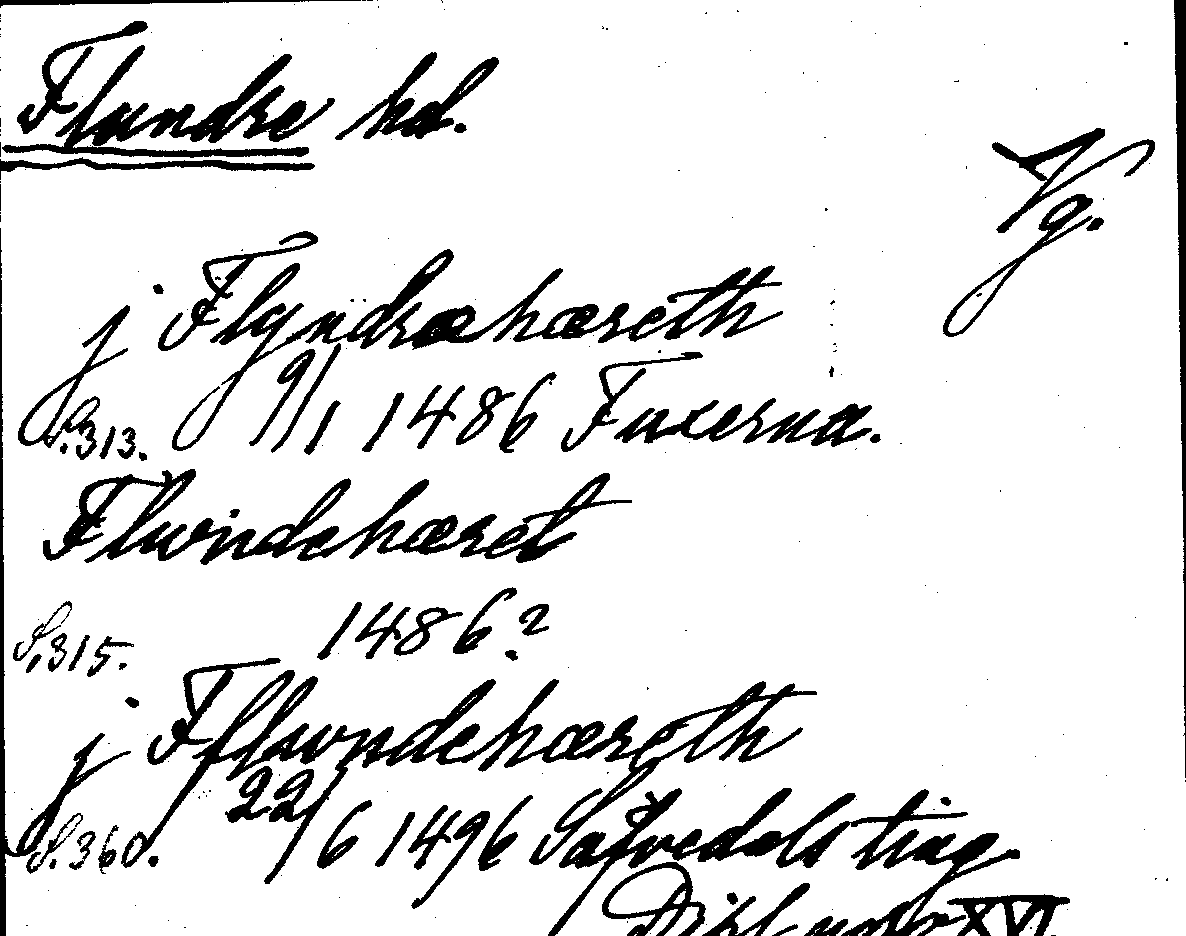 Flundre hd.
Vg.
j Flyndræhæreth
S. 313. 9/1 1486 Fuxerna.
Flwndehæret
S. 315. 1486?
j Fflwndehæreth
S. 360. 22/6 1496 Säfvedals ting.
Dipl. norv. XVI.